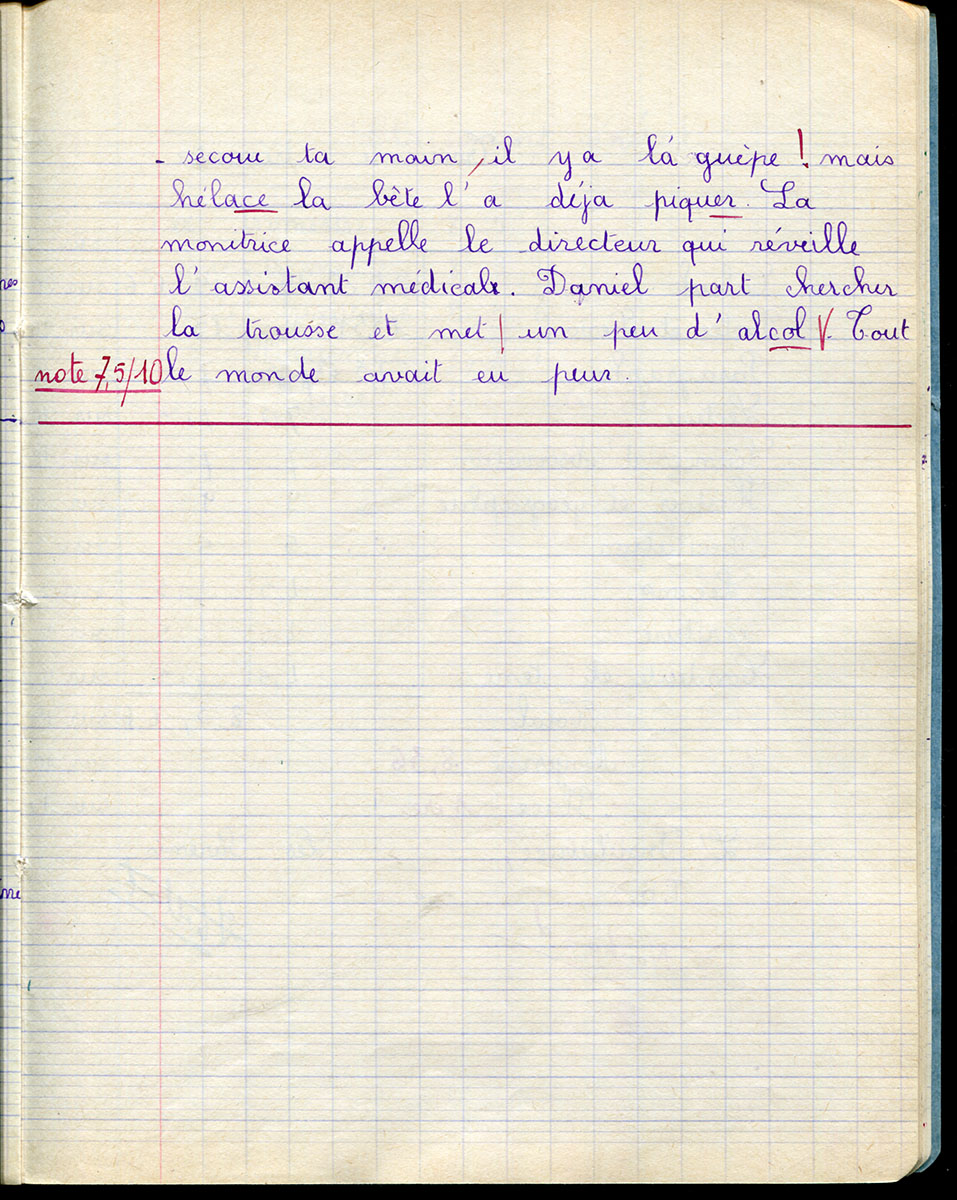 - secoue ta main, il y a là guèpe ! mais
hélace la bête l'a déja piquer. La
monitrice appelle le directeur qui réveille
l'assistant médical. Daniel part chercher
la trousse et met ! un peu d'alcol V. Tout
note 7,5/10 le monde avait eu peur.